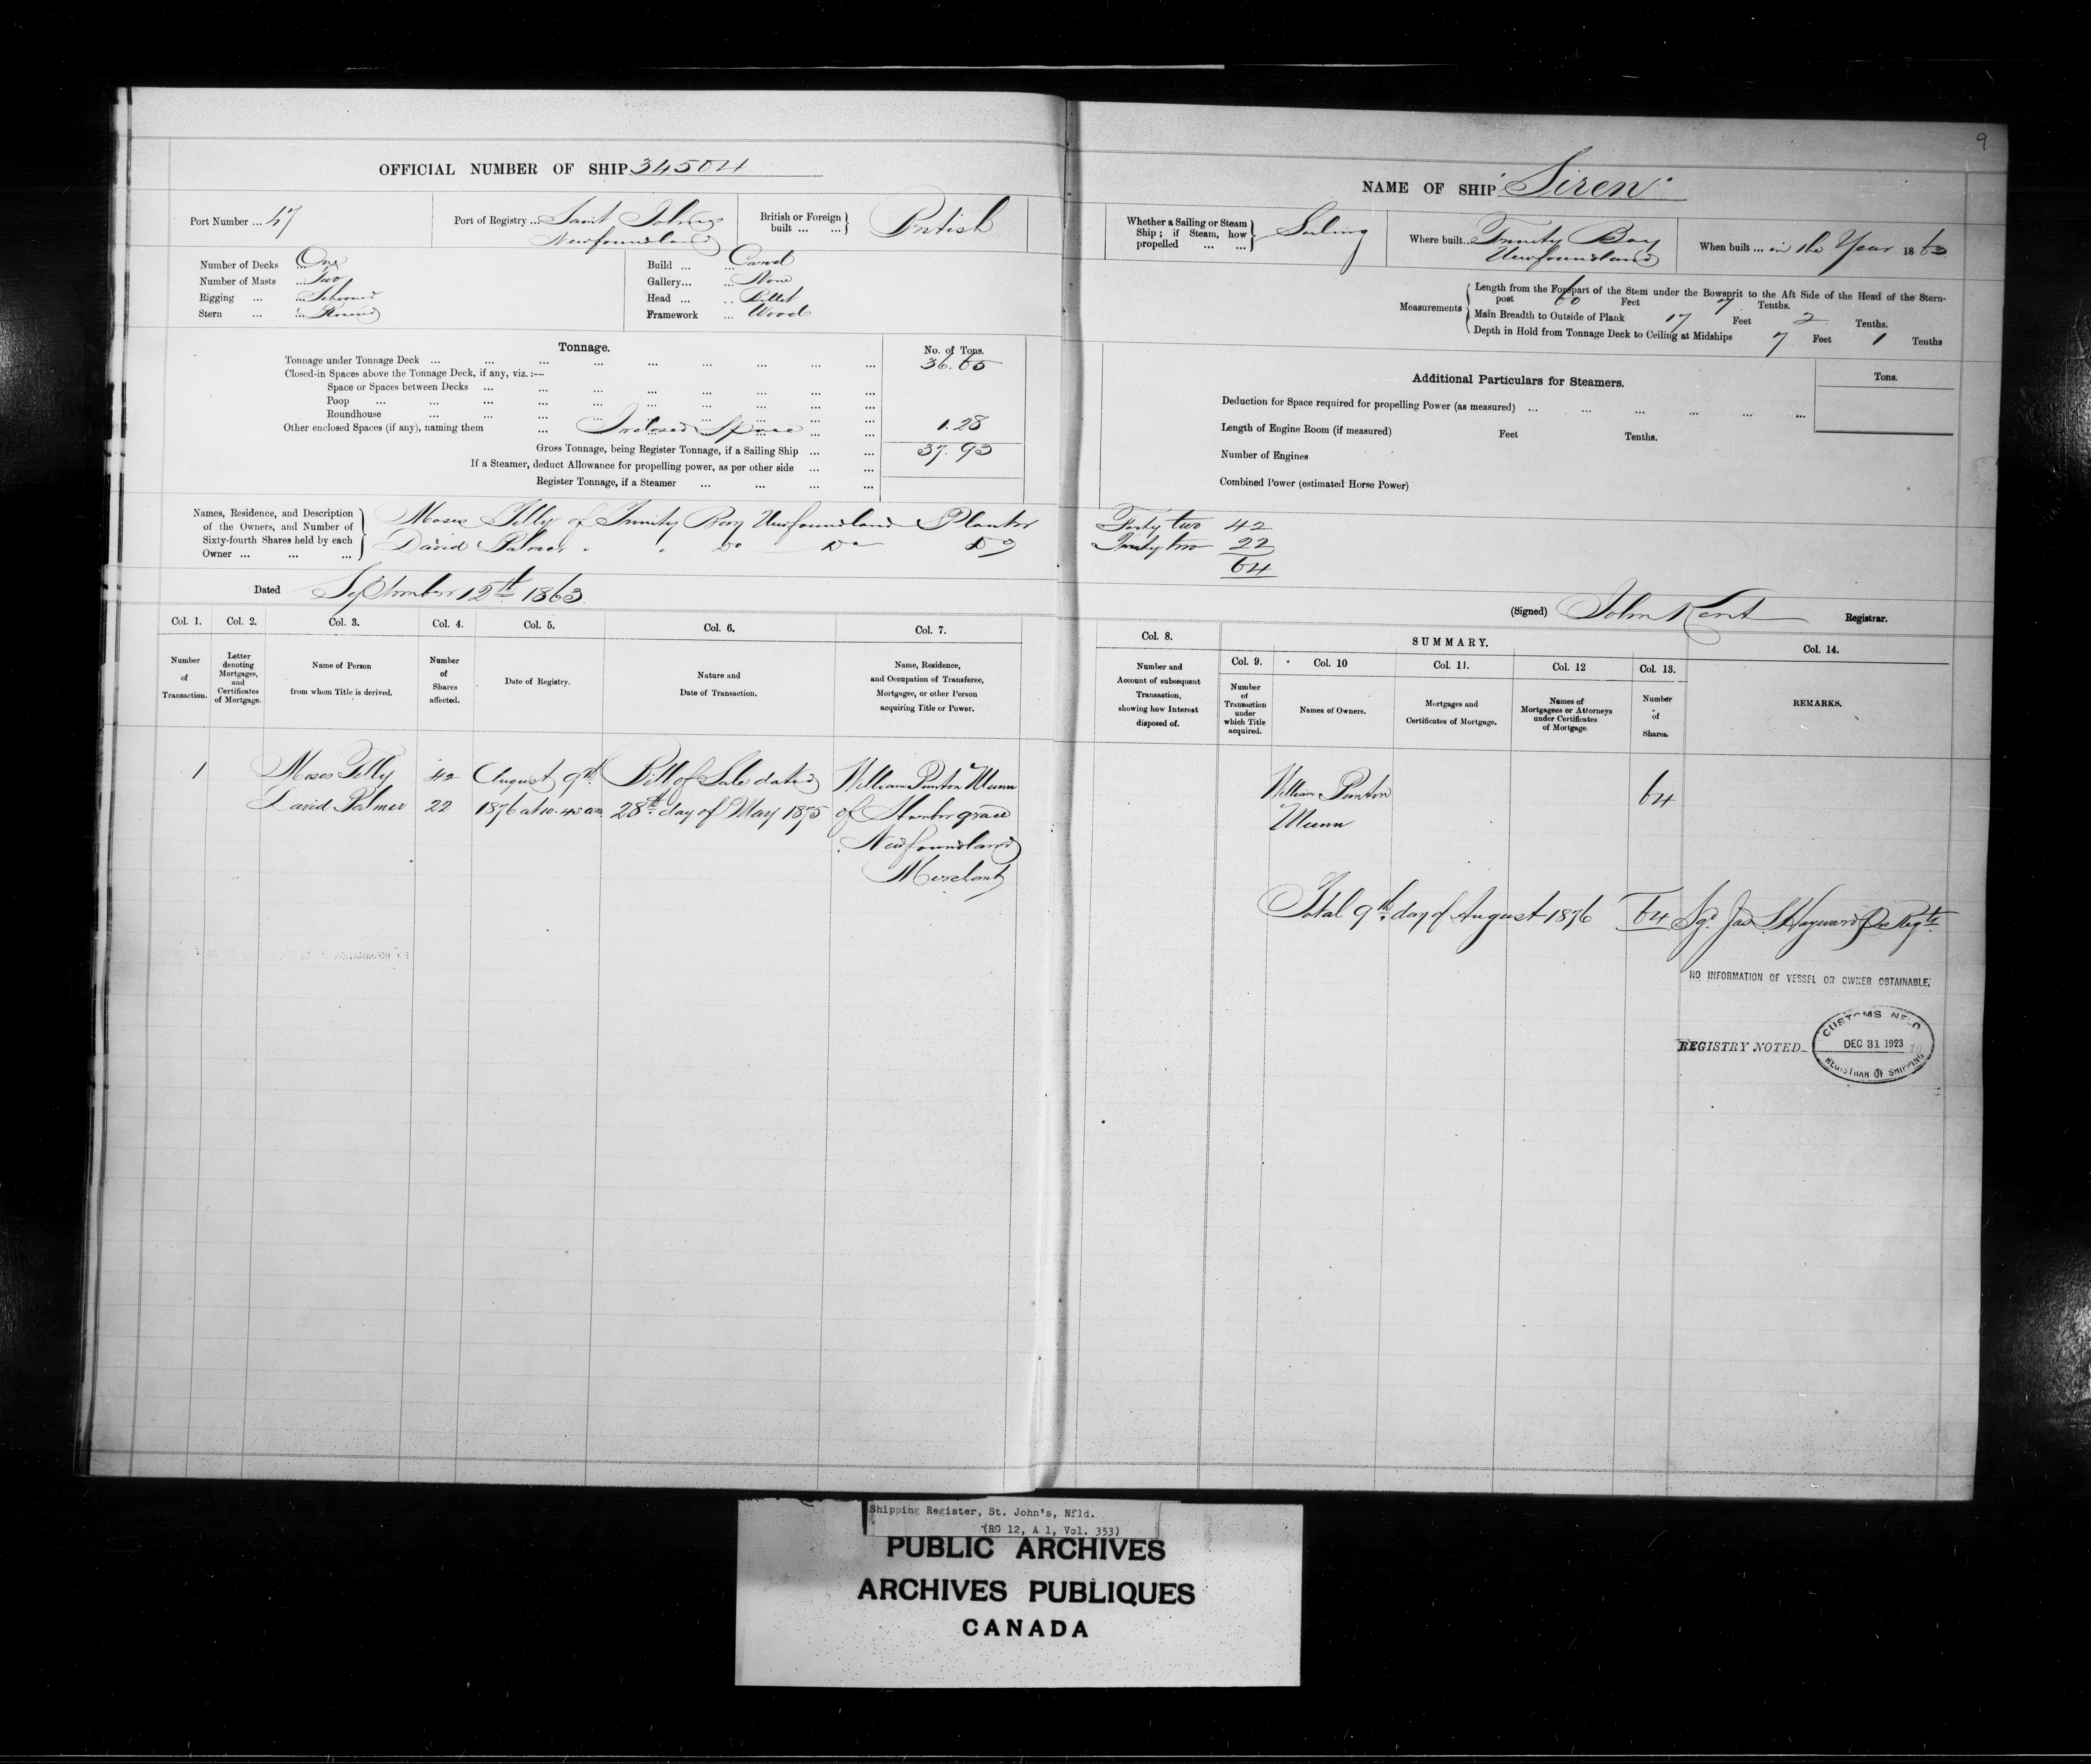 9
OFFICIAL NUMBER OF SHIP 34504
Port Number ... 47
Port of Registry ... Saint Johns
Newfoundland
British or Foreign built ... ... British
Number of Decks ... One
Number of Masts ... Two
Rigging ... ... Schooner
Stern ... ... Round
Build ... ... Carvel
Gallery ... ... None
Head ... ... Billet
Framework ... Wood
Tonnage.
No. of Tons.
Tonnage under Tonnage Deck ... 36.65
Closed-in Spaces above the Tonnage Deck, if any, viz. :—
Space or Spaces between Decks ...
Poop ...
Roundhouse ...
Other enclosed Spaces (if any), naming them ... Inclosed Space ... 1.28
Gross Tonnage, being Register Tonnage, if a Sailing Ship ... 37.93
If a Steamer, deduct Allowance for propelling power, as per other side ...
Register Tonnage, if a Steamer ...
Names, Residence, and Description
of the Owners, and Number of
Sixty-fourth Shares held by each
Owner ... ... ...
Moses Tilly of Trinity Bay Newfoundland Planter
David Palmer " " Do Do Do
Dated September 12th 1863
Col. 1. Col. 2. Col. 3. Col. 4. Col. 5. Col. 6. Col. 7.
Number of Transaction.
Letter denoting Mortgages, and Certificates of Mortgage.
Name of Person from whom Title is derived.
Number of Shares affected.
Date of Registry.
Nature and Date of Transaction.
Name, Residence, and Occupation of Transferee, Mortgagee, or other Person acquiring Title or Power.
1 Moses Tilly 42 August 9th Bill of Sale dated William Punton Munn
David Palmer 22 1876 at 10.45 am 28th day of May 1875 of Harbor grace
Newfoundland
Merchant
NAME OF SHIP "Siren"
Whether a Sailing or Steam Ship; if Steam, how propelled ... ... Sailing
Where built.. Trinity Bay
Newfoundland
When built ... in the Year 1863
Measurements
Length from the Forepart of the Stem under the Bowsprit to the Aft Side of the Head of the Stern-
post 60 Feet 7 Tenths.
Main Breadth to Outside of Plank 17 Feet 2 Tenths.
Depth in Hold from Tonnage Deck to Ceiling at Midships 7 Feet 1 Tenths
Additional Particulars for Steamers.
Tons.
Deduction for Space required for propelling Power (as measured) ...
Length of Engine Room (if measured) Feet Tenths.
Number of Engines
Combined Power (estimated Horse Power)
Forty two 42
Twenty two 22
64
(Signed) John Kent Registrar.
Col. 8.
SUMMARY.
Col. 9. Col. 10 Col. 11. Col. 12 Col. 13. Col. 14.
Number and Account of subsequent Transaction, showing how Interest disposed of.
Number of Transaction under which Title acquired.
Names of Owners.
Mortgages and Certificates of Mortgage.
Names of Mortgagees or Attorneys under Certificates of Mortgage.
Number of Shares.
REMARKS.
William Punton 64
Munn
Total 9th day of August 1876 64 Sgd. Jas S Hayward Pro Regtr
NO INFORMATION OF VESSEL OR OWNER OBTAINABLE.
REGISTRY NOTED
CUSTOMS NFLD
DEC 31 1923
REGISTRAR OF SHIPPING
Shipping Register, St. John's, Nfld.
(RG 12, A 1, Vol. 353)
PUBLIC ARCHIVES
ARCHIVES PUBLIQUES
CANADA